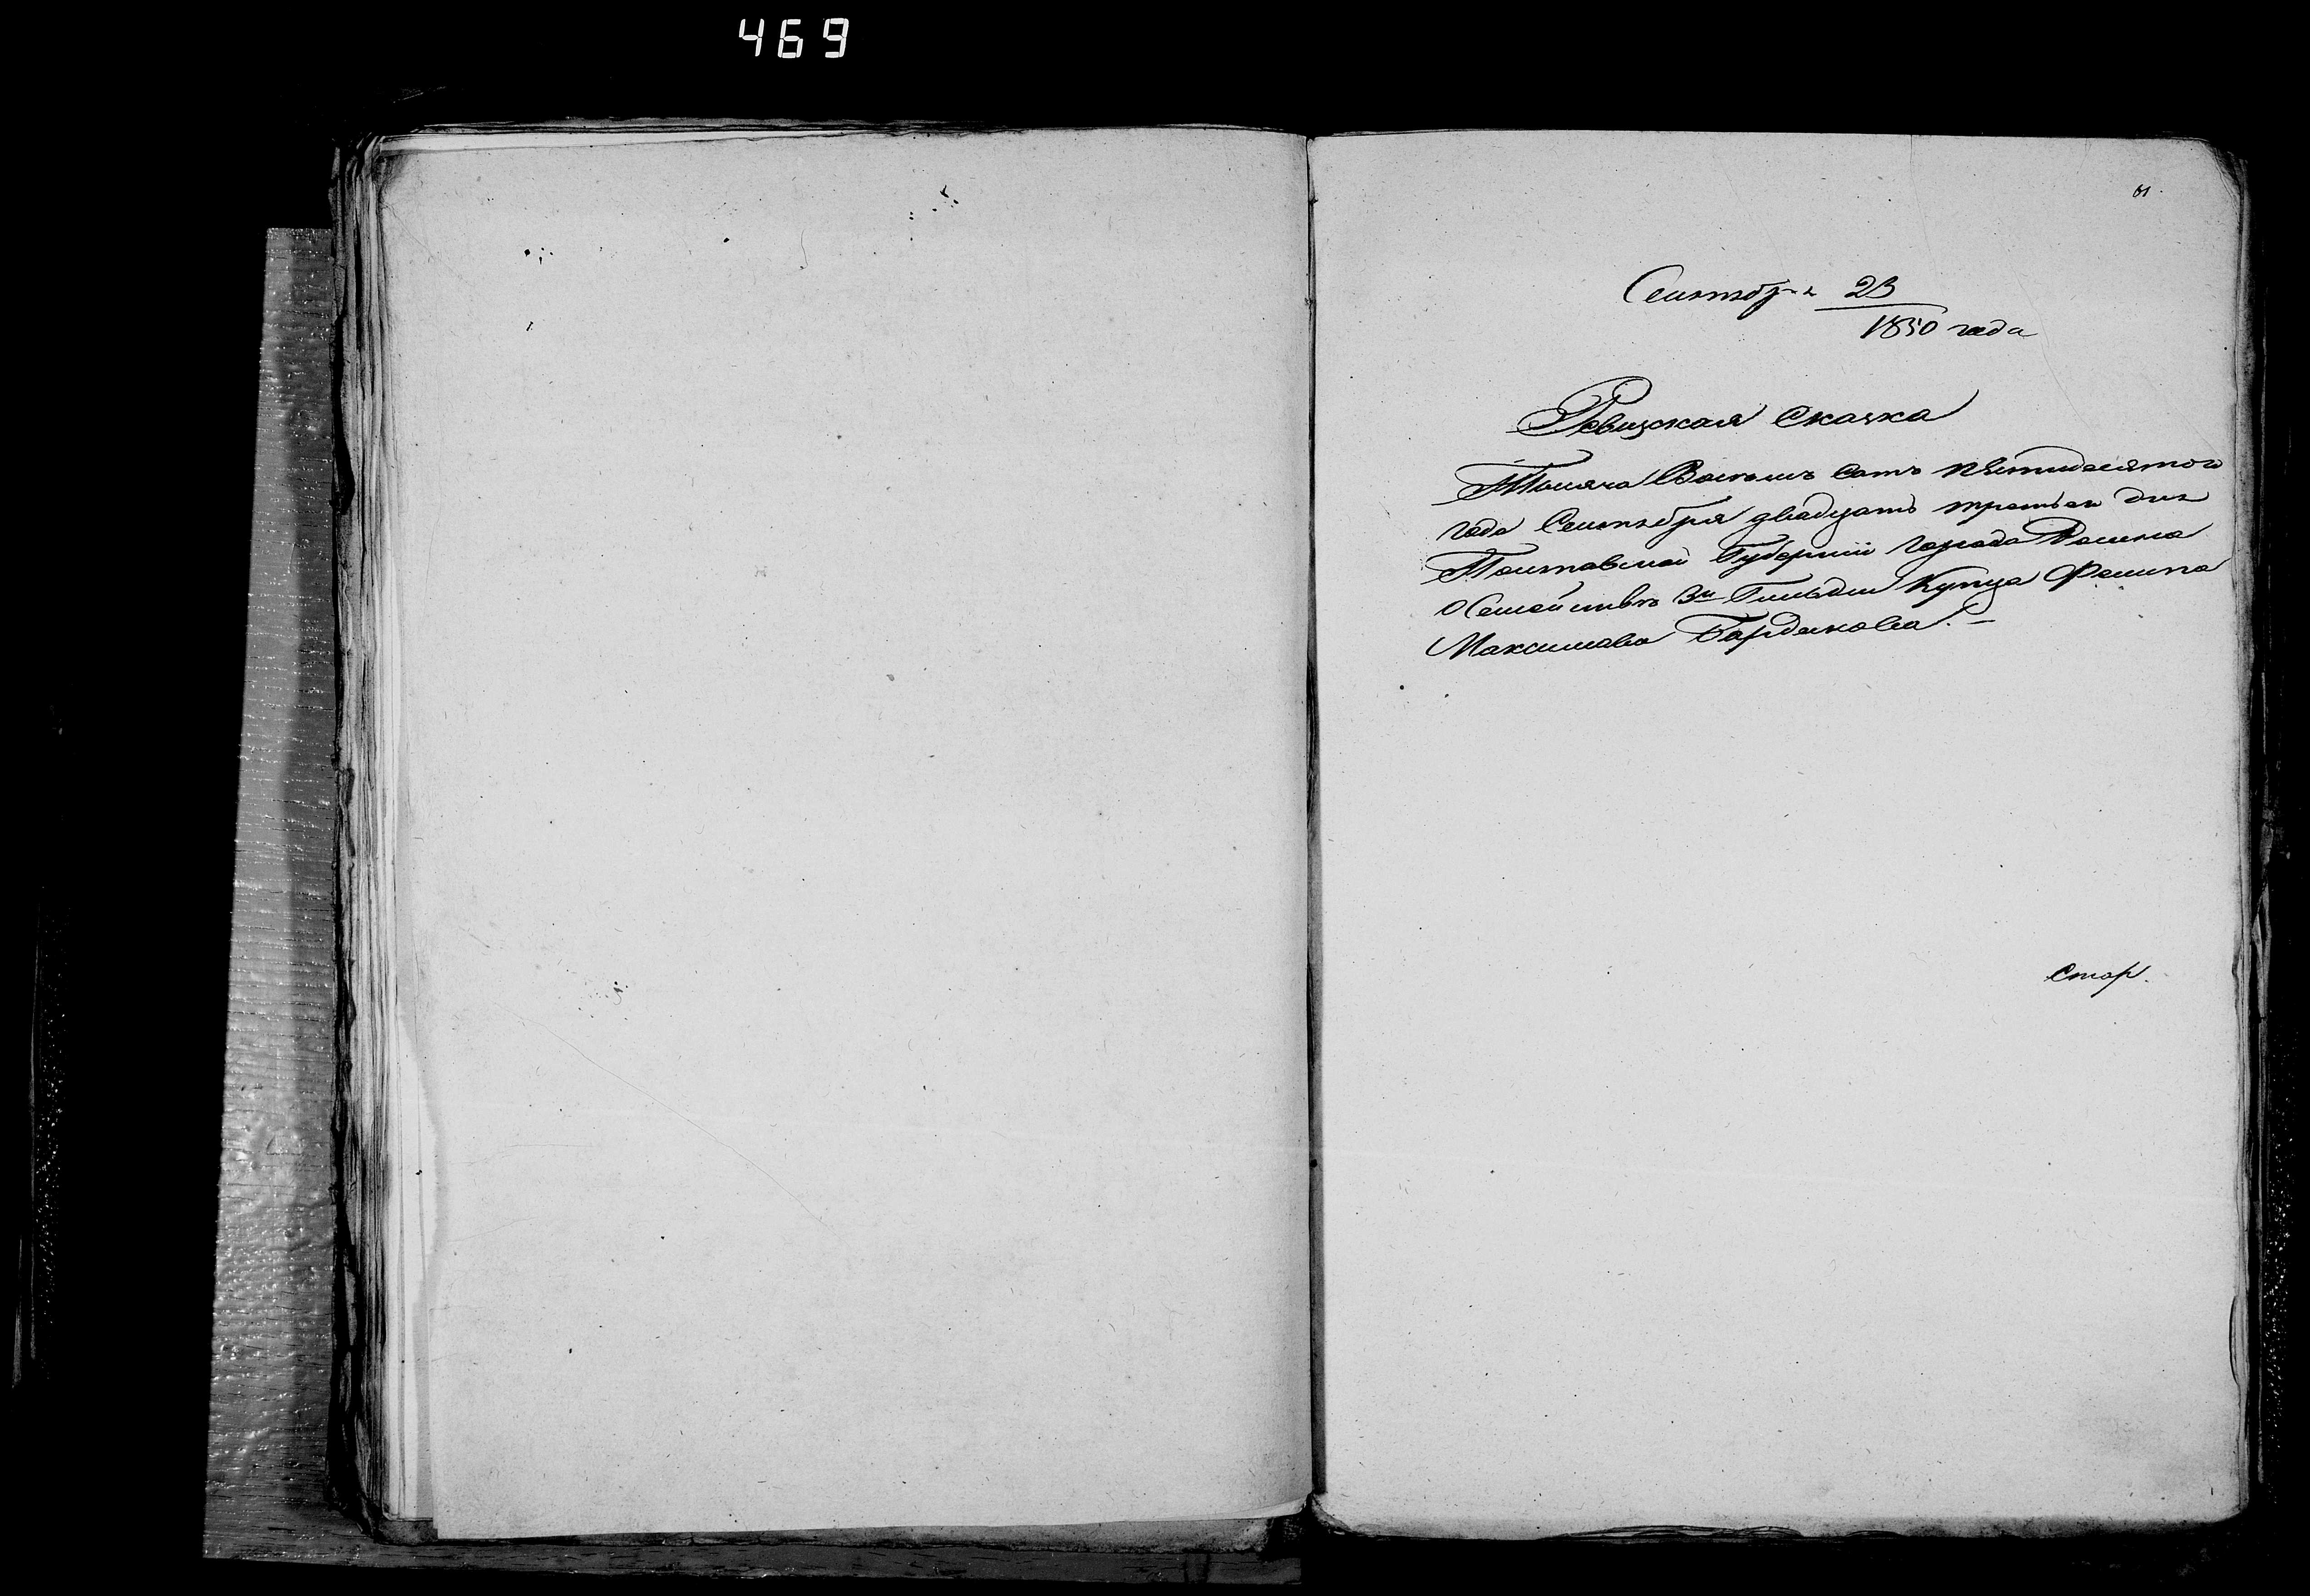 469
Сентября 23
1850 года
Ревизская Сказка
Тысяча Восемь сотъ пятидесятого
года Сентября двадцать третьего дня
Полтавской Губерніи города Ромна
О Семействѣ 3й Гильдіи Купца Филипа
Максимова Бардакова.
Стар.